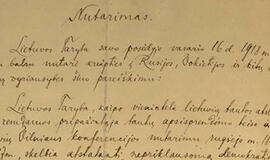 Nutarimas.
Lietuvos Taryba savo posėdyje vasario 16 d. 1918 m.
balsu nutarė kreiptis į Rusijos, Vokietijos ir kitų
vyriausybes šiuo pareiškimu:
Lietuvos Taryba, kaipo vienintelė lietuvių tautos atst
remdamos pripažintąja tautų apsisprendimo teise ir
vių Vilniaus konferencijos nutarimu rugsėjo m. 1
skelbia atstatanti nepriklausomą demokrat